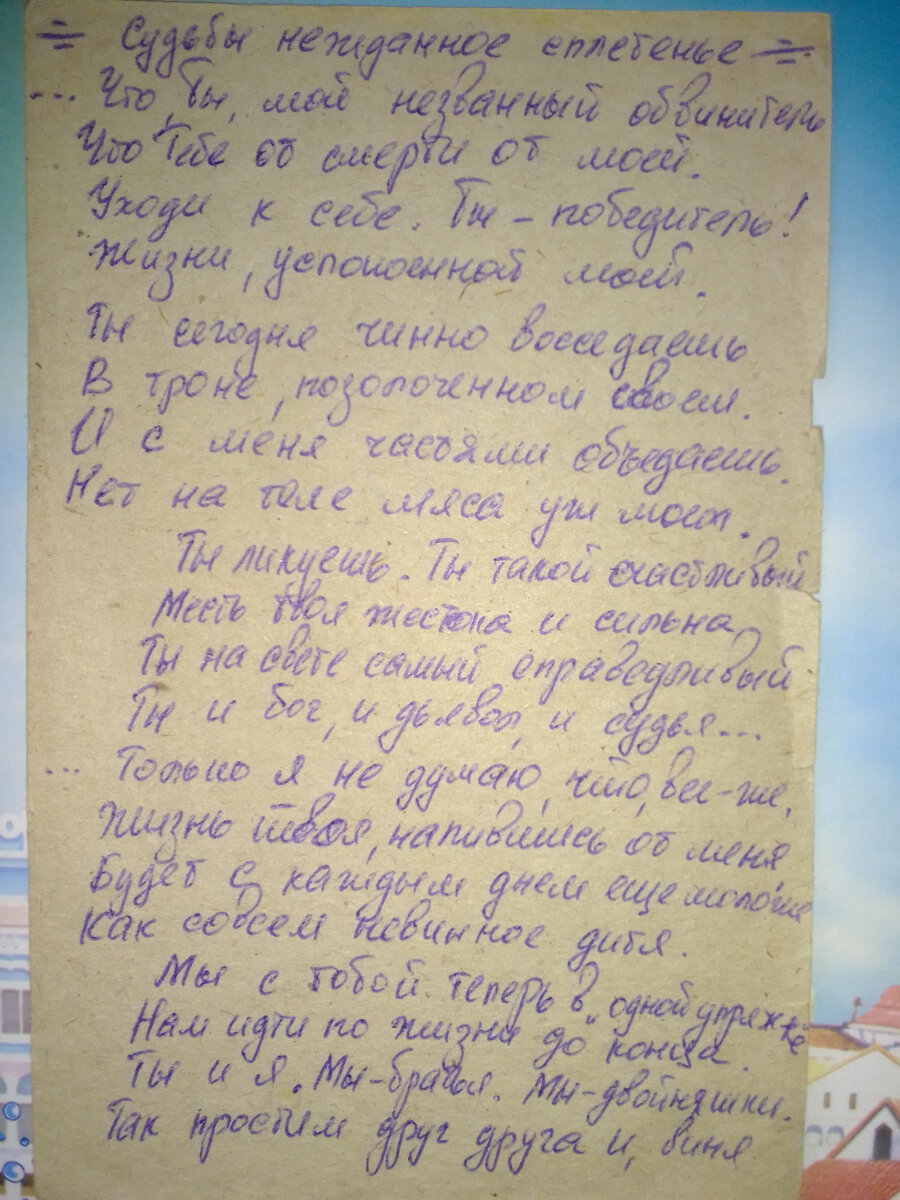 = Судьбы нежданное сплетенье =
... Что, Ты, мой незванный обвинитель
Что Тебе от смерти от моей.
Уходи к себе. Ты – победитель!
Жизни, успокоенной моей.
Ты сегодня чинно восседаешь
В троне, позолоченном своем.
И с меня частями объедаешь.
Нет на теле мяса уж моем.
Ты ликуешь. Ты такой счастливый
Месть твоя жестока и сильна,
Ты на свете самый справедливый
Ты и бог, и дьявол, и судья...
... Только я не думаю, что, все-же,
Жизнь твоя, напившись от меня
Будет с каждым днем еще моложе
Как совсем невинное дитя.
Мы с тобой теперь в одной упряжке
Нам идти по жизни до конца.
Ты и я. Мы-братья. Мы-двойняшки.
Так простим друг друга и, виня